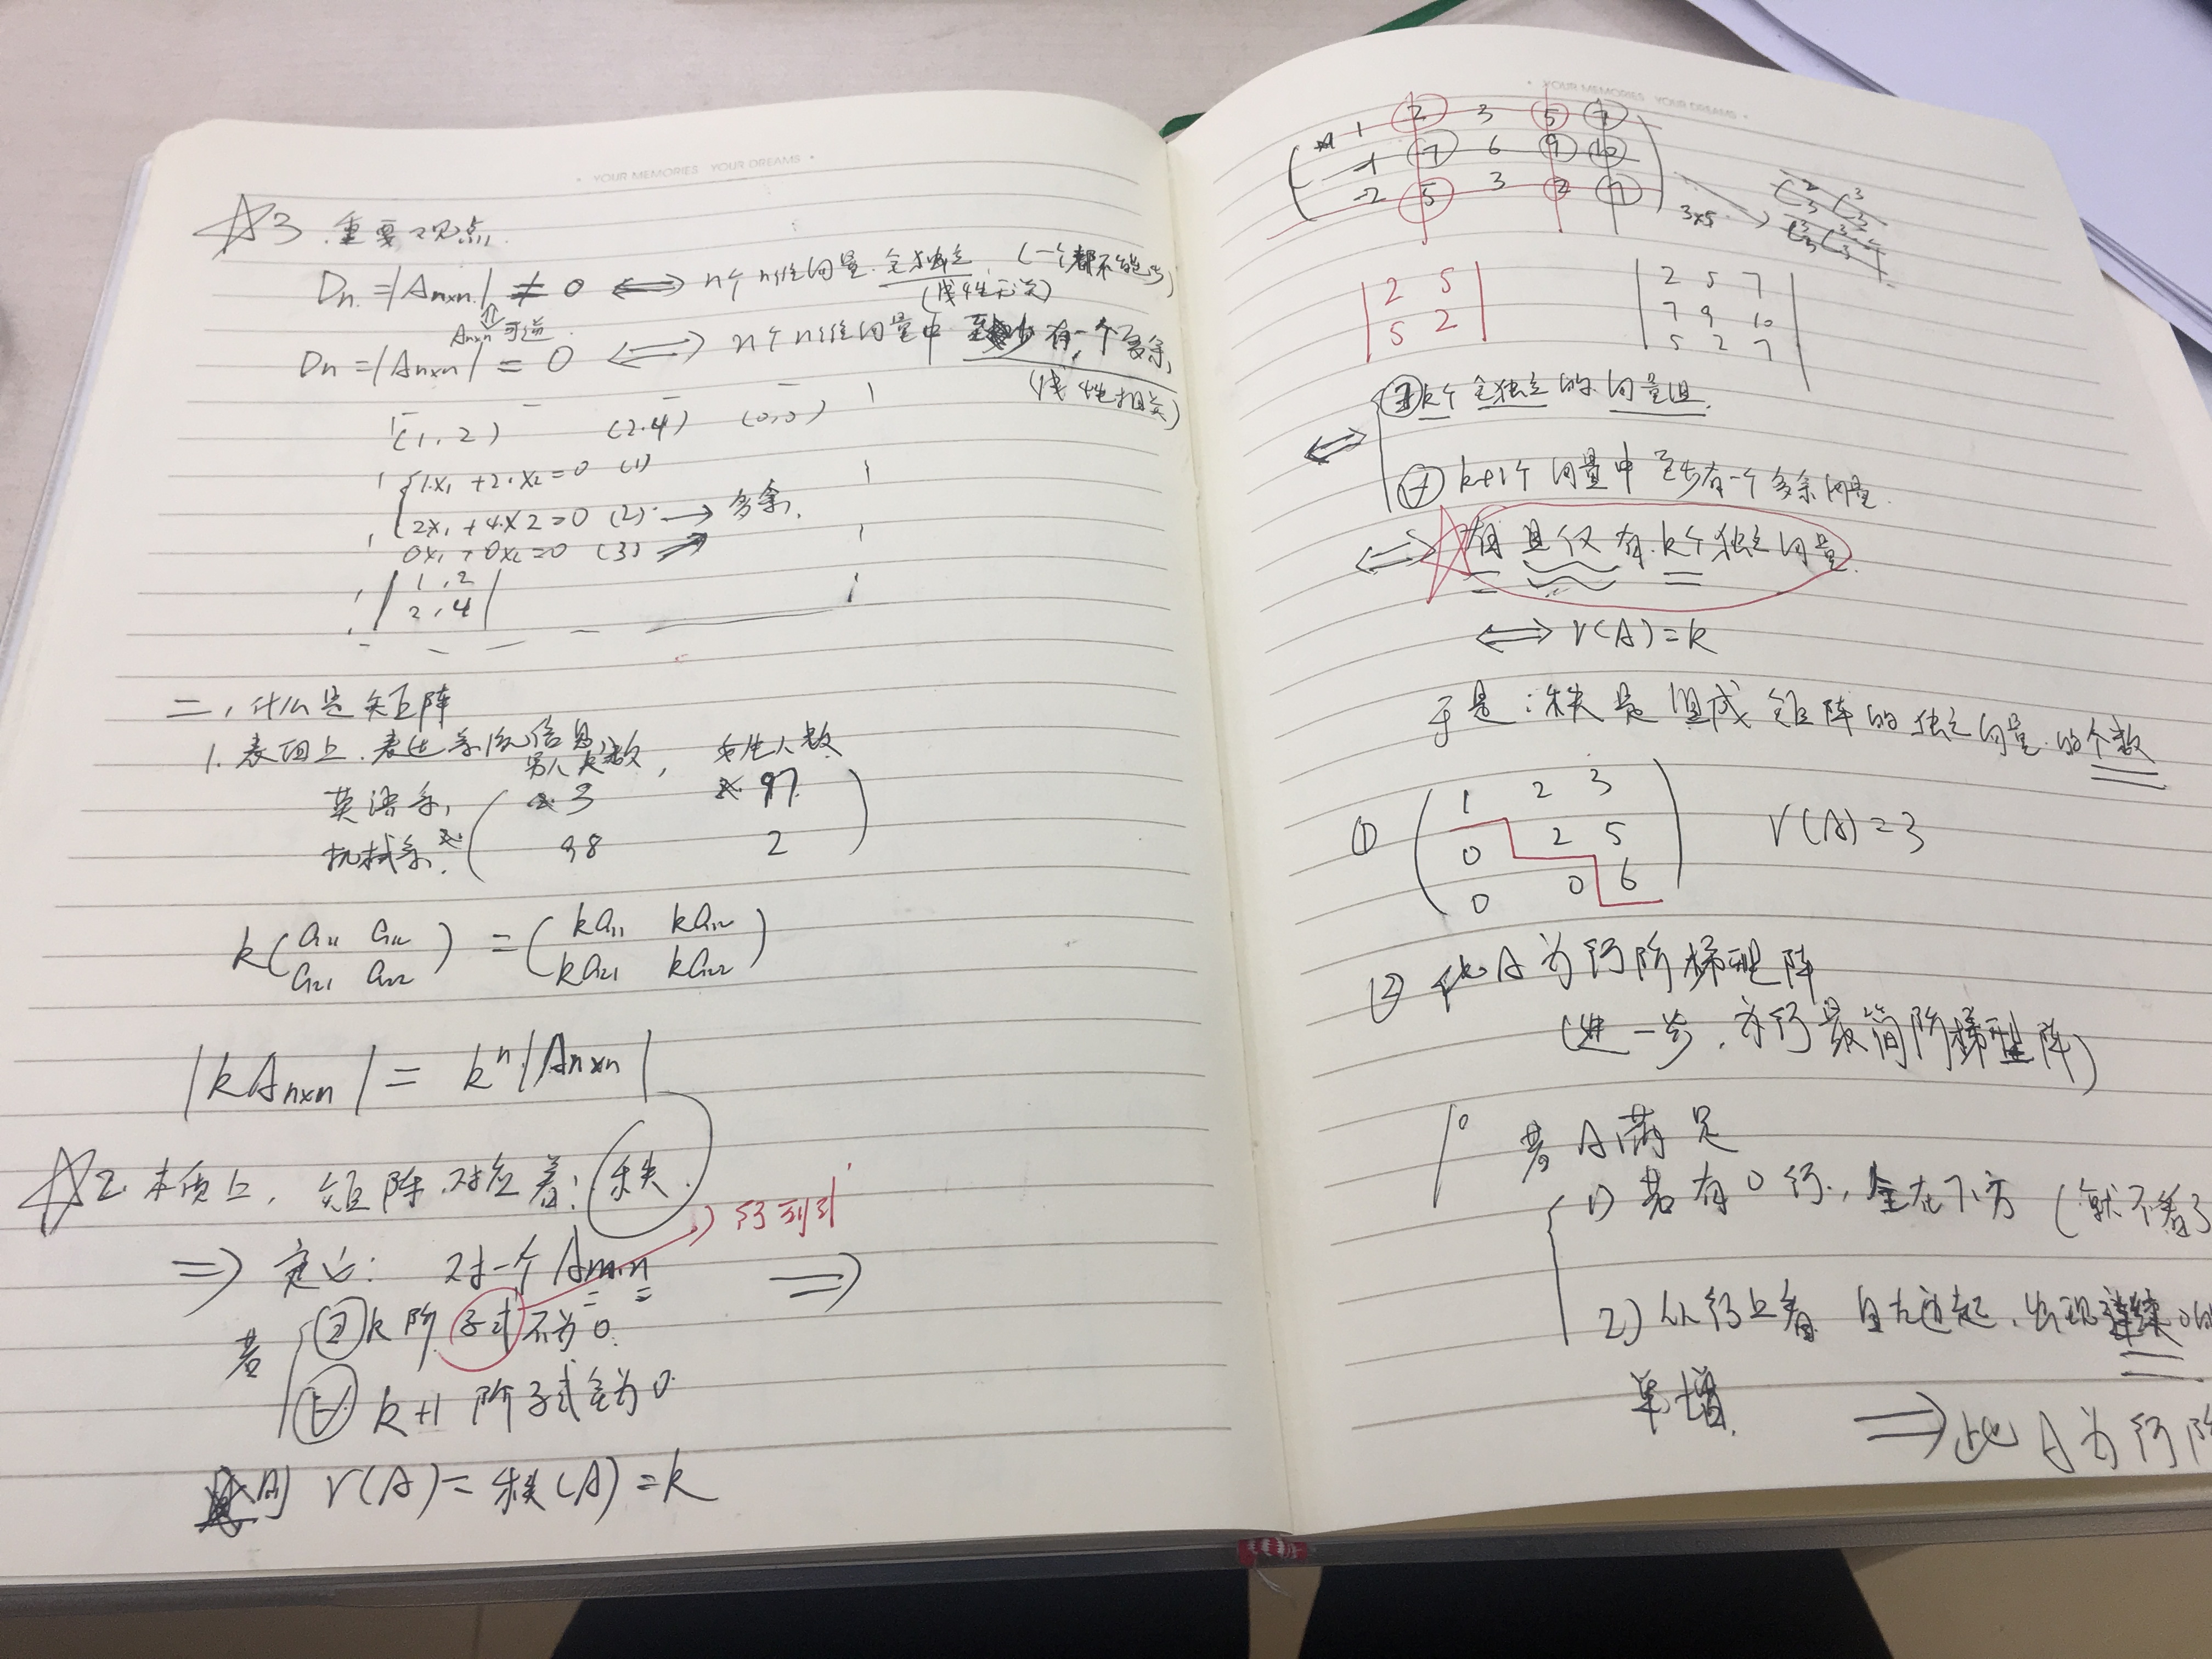 YOUR MEMORIES YOUR DREAMS
☆3. 重要观点
Dn = |An×n| ≠ 0 ⟺ n个n维向量全独立 (一个都不能少)
(线性无关)
An×n 可逆
Dn = |An×n| = 0 ⟺ n个n维向量中至少有一个多余
(线性相关)
(1,2) (2.4) (0,0)
1·x₁ + 2·x₂ = 0 (1)
2x₁ + 4·x2 = 0 (2) → 多余
0x₁ + 0x₂ = 0 (3) →
1,2
2,4
二,什么是矩阵
1. 表面上,表达系统信息
男人人数, 女生人数
英语系, 3 97
机械系. 98 2
k(a₁₁ a₁₂ = (ka₁₁ ka₁₂
a₂₁ a₂₂) ka₂₁ ka₂₂)
|kAn×n| = kⁿ|An×n|
☆2. 本质上, 矩阵对应着:秩
⇒ 定义: 对一个Am×n ⇒
→ 行列式
若 ∃ k阶子式不为0.
∀ k+1阶子式全为0
则 r(A) = 秩(A) = k
YOUR MEMORIES YOUR DREAMS
1 2 3 5 7
-1 7 6 9 10
-2 5 3 2 7
3×5
2 5
5 2
2 5 7
7 9 10
5 2 7
∃ k个全独立的向量组.
⟺
∀ k+1个向量中至少有一个多余向量.
⟺ ☆有且仅有k个独立向量.
⟺ r(A) = k
于是:秩是组成矩阵的独立向量的个数
① 1 2 3
0 2 5 r(A) = 3
0 0 6
② 此A为行阶梯型阵
(进一步,为行最简阶梯型阵)
1° 若A满足
1) 若有0行, 全在下方 (就不看了
2) 从行上看 自左边起,出现连续0的
单增. ⇒ 此A为行阶